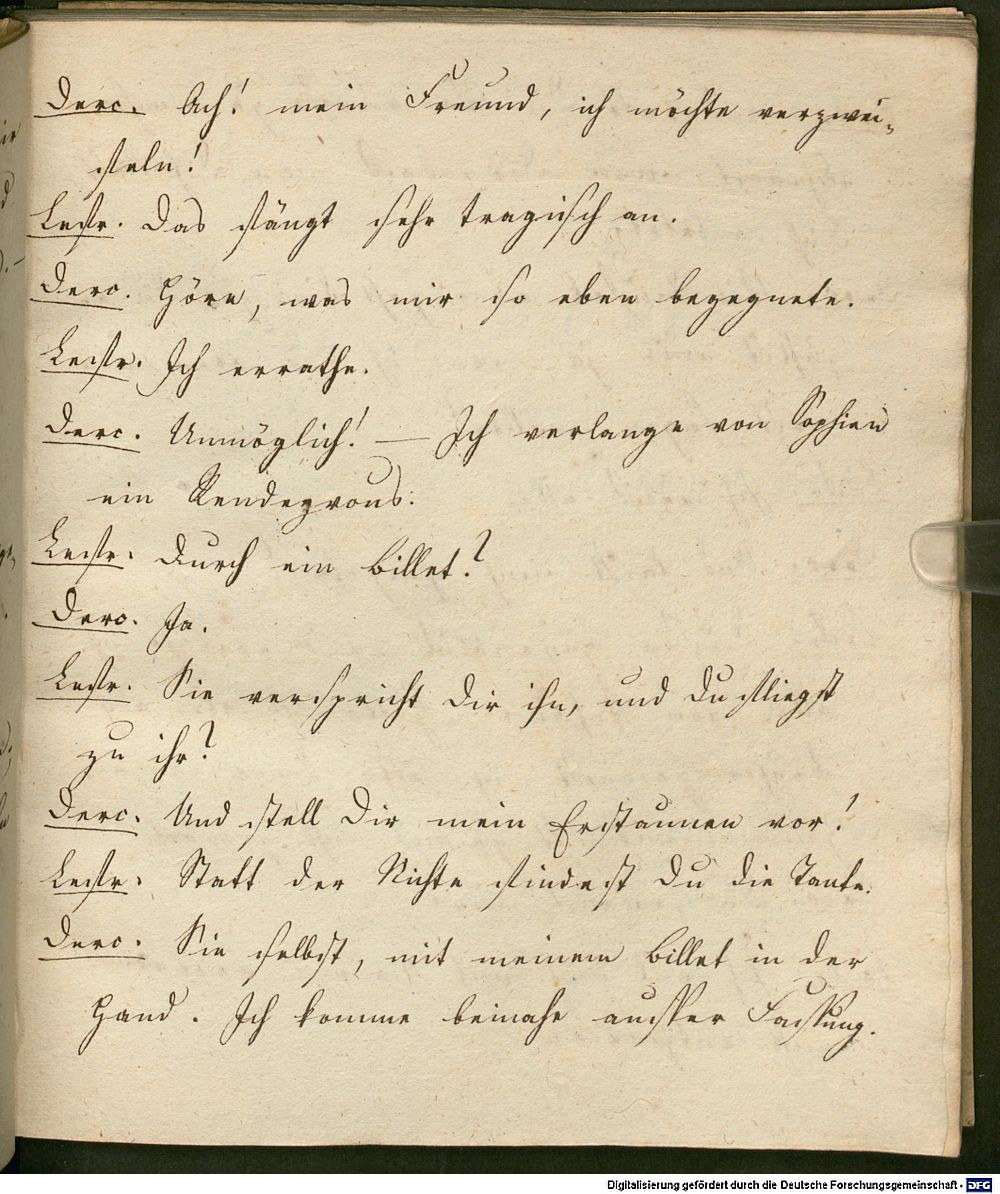 Derc. Ach! mein Freund, ich möchte verzwei-
feln!
Lestr. Das fängt sehr tragisch an.
Derc. Höre, was mir so eben begegnete.
Lestr. Ich errathe.
Derc. Unmöglich! — Ich verlange von Sophien
ein Rendezvous.
Lestr. Durch ein Billet?
Derc. Ja.
Lestr. Sie verspricht Dir ihn, und Du fliegst
zu ihr?
Derc. Und stell Dir mein Erstaunen vor!
Lestr. Statt der Nichte findest Du die Tante.
Derc. Sie selbst, mit meinem Billet in der
Hand. Ich komme beinahe ausser Fassung.
Digitalisierung gefördert durch die Deutsche Forschungsgemeinschaft - DFG